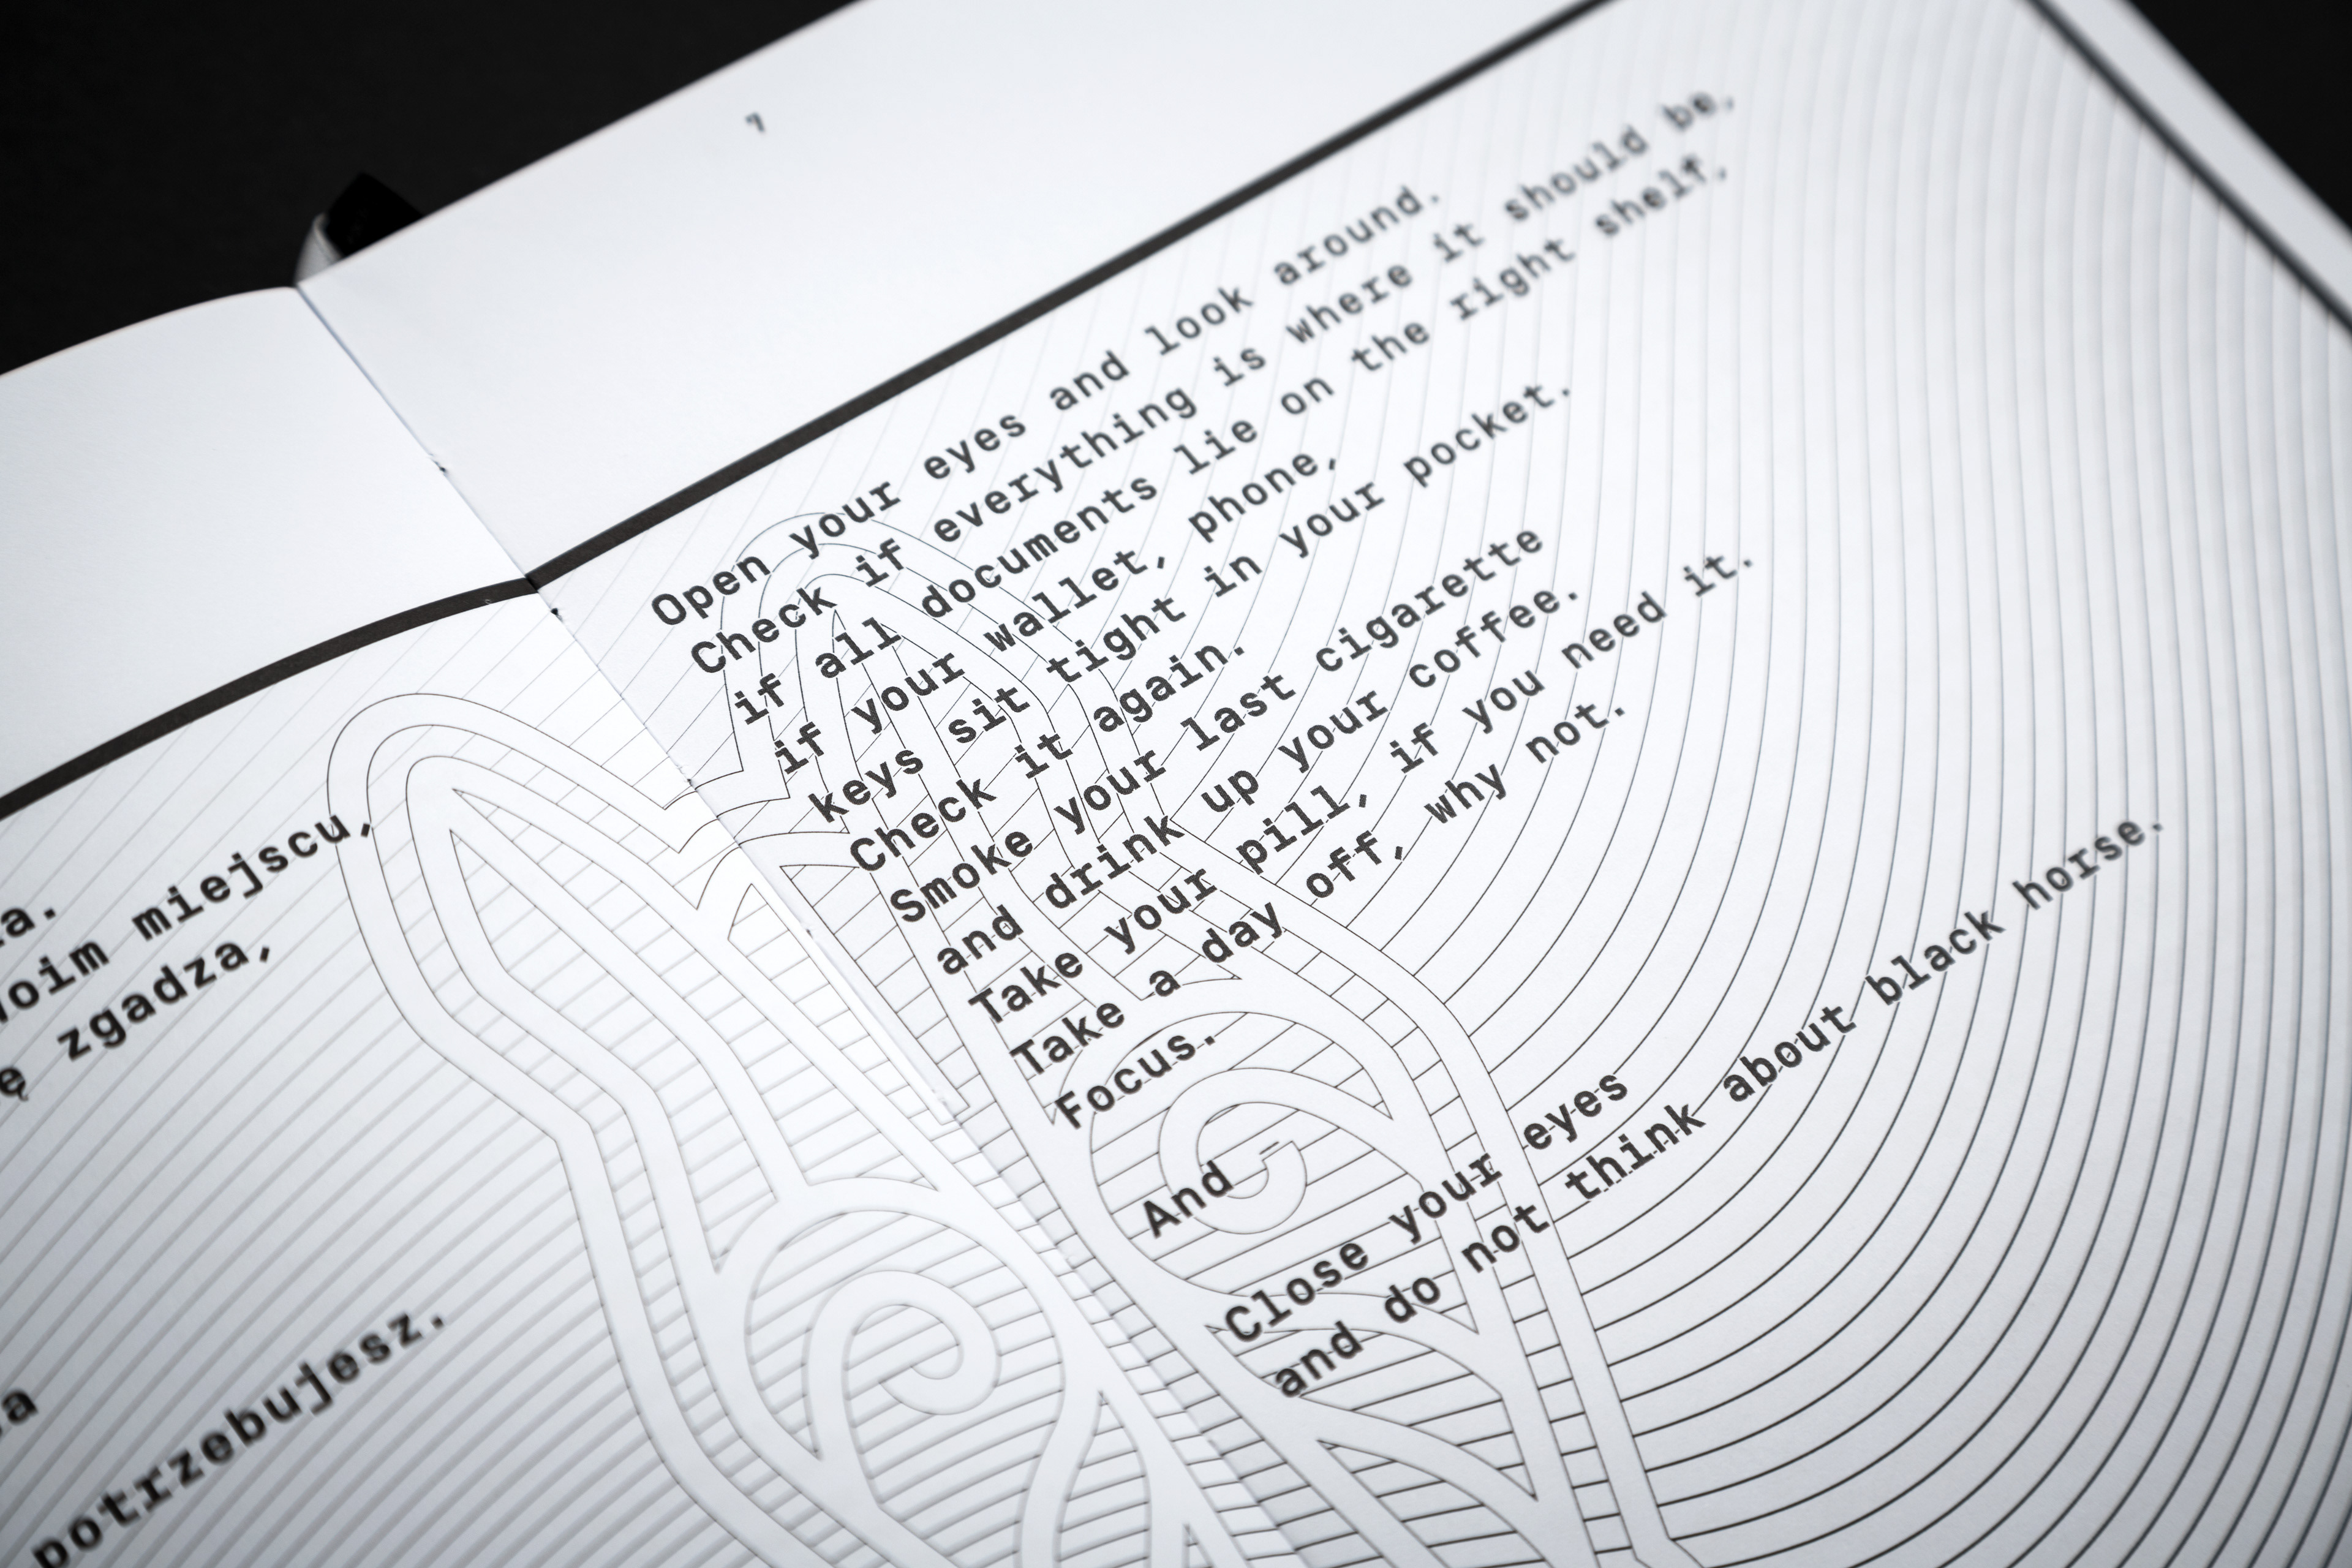 a.
woim miejscu,
ę zgadza,
a
potrzebujesz.
7
Open your eyes and look around.
Check if everything is where it should be,
if all documents lie on the right shelf,
if your wallet, phone,
keys sit tight in your pocket.
Check it again.
Smoke your last cigarette
and drink up your coffee.
Take your pill, if you need it.
Take a day off, why not.
Focus.
And
Close your eyes
and do not think about black horse.